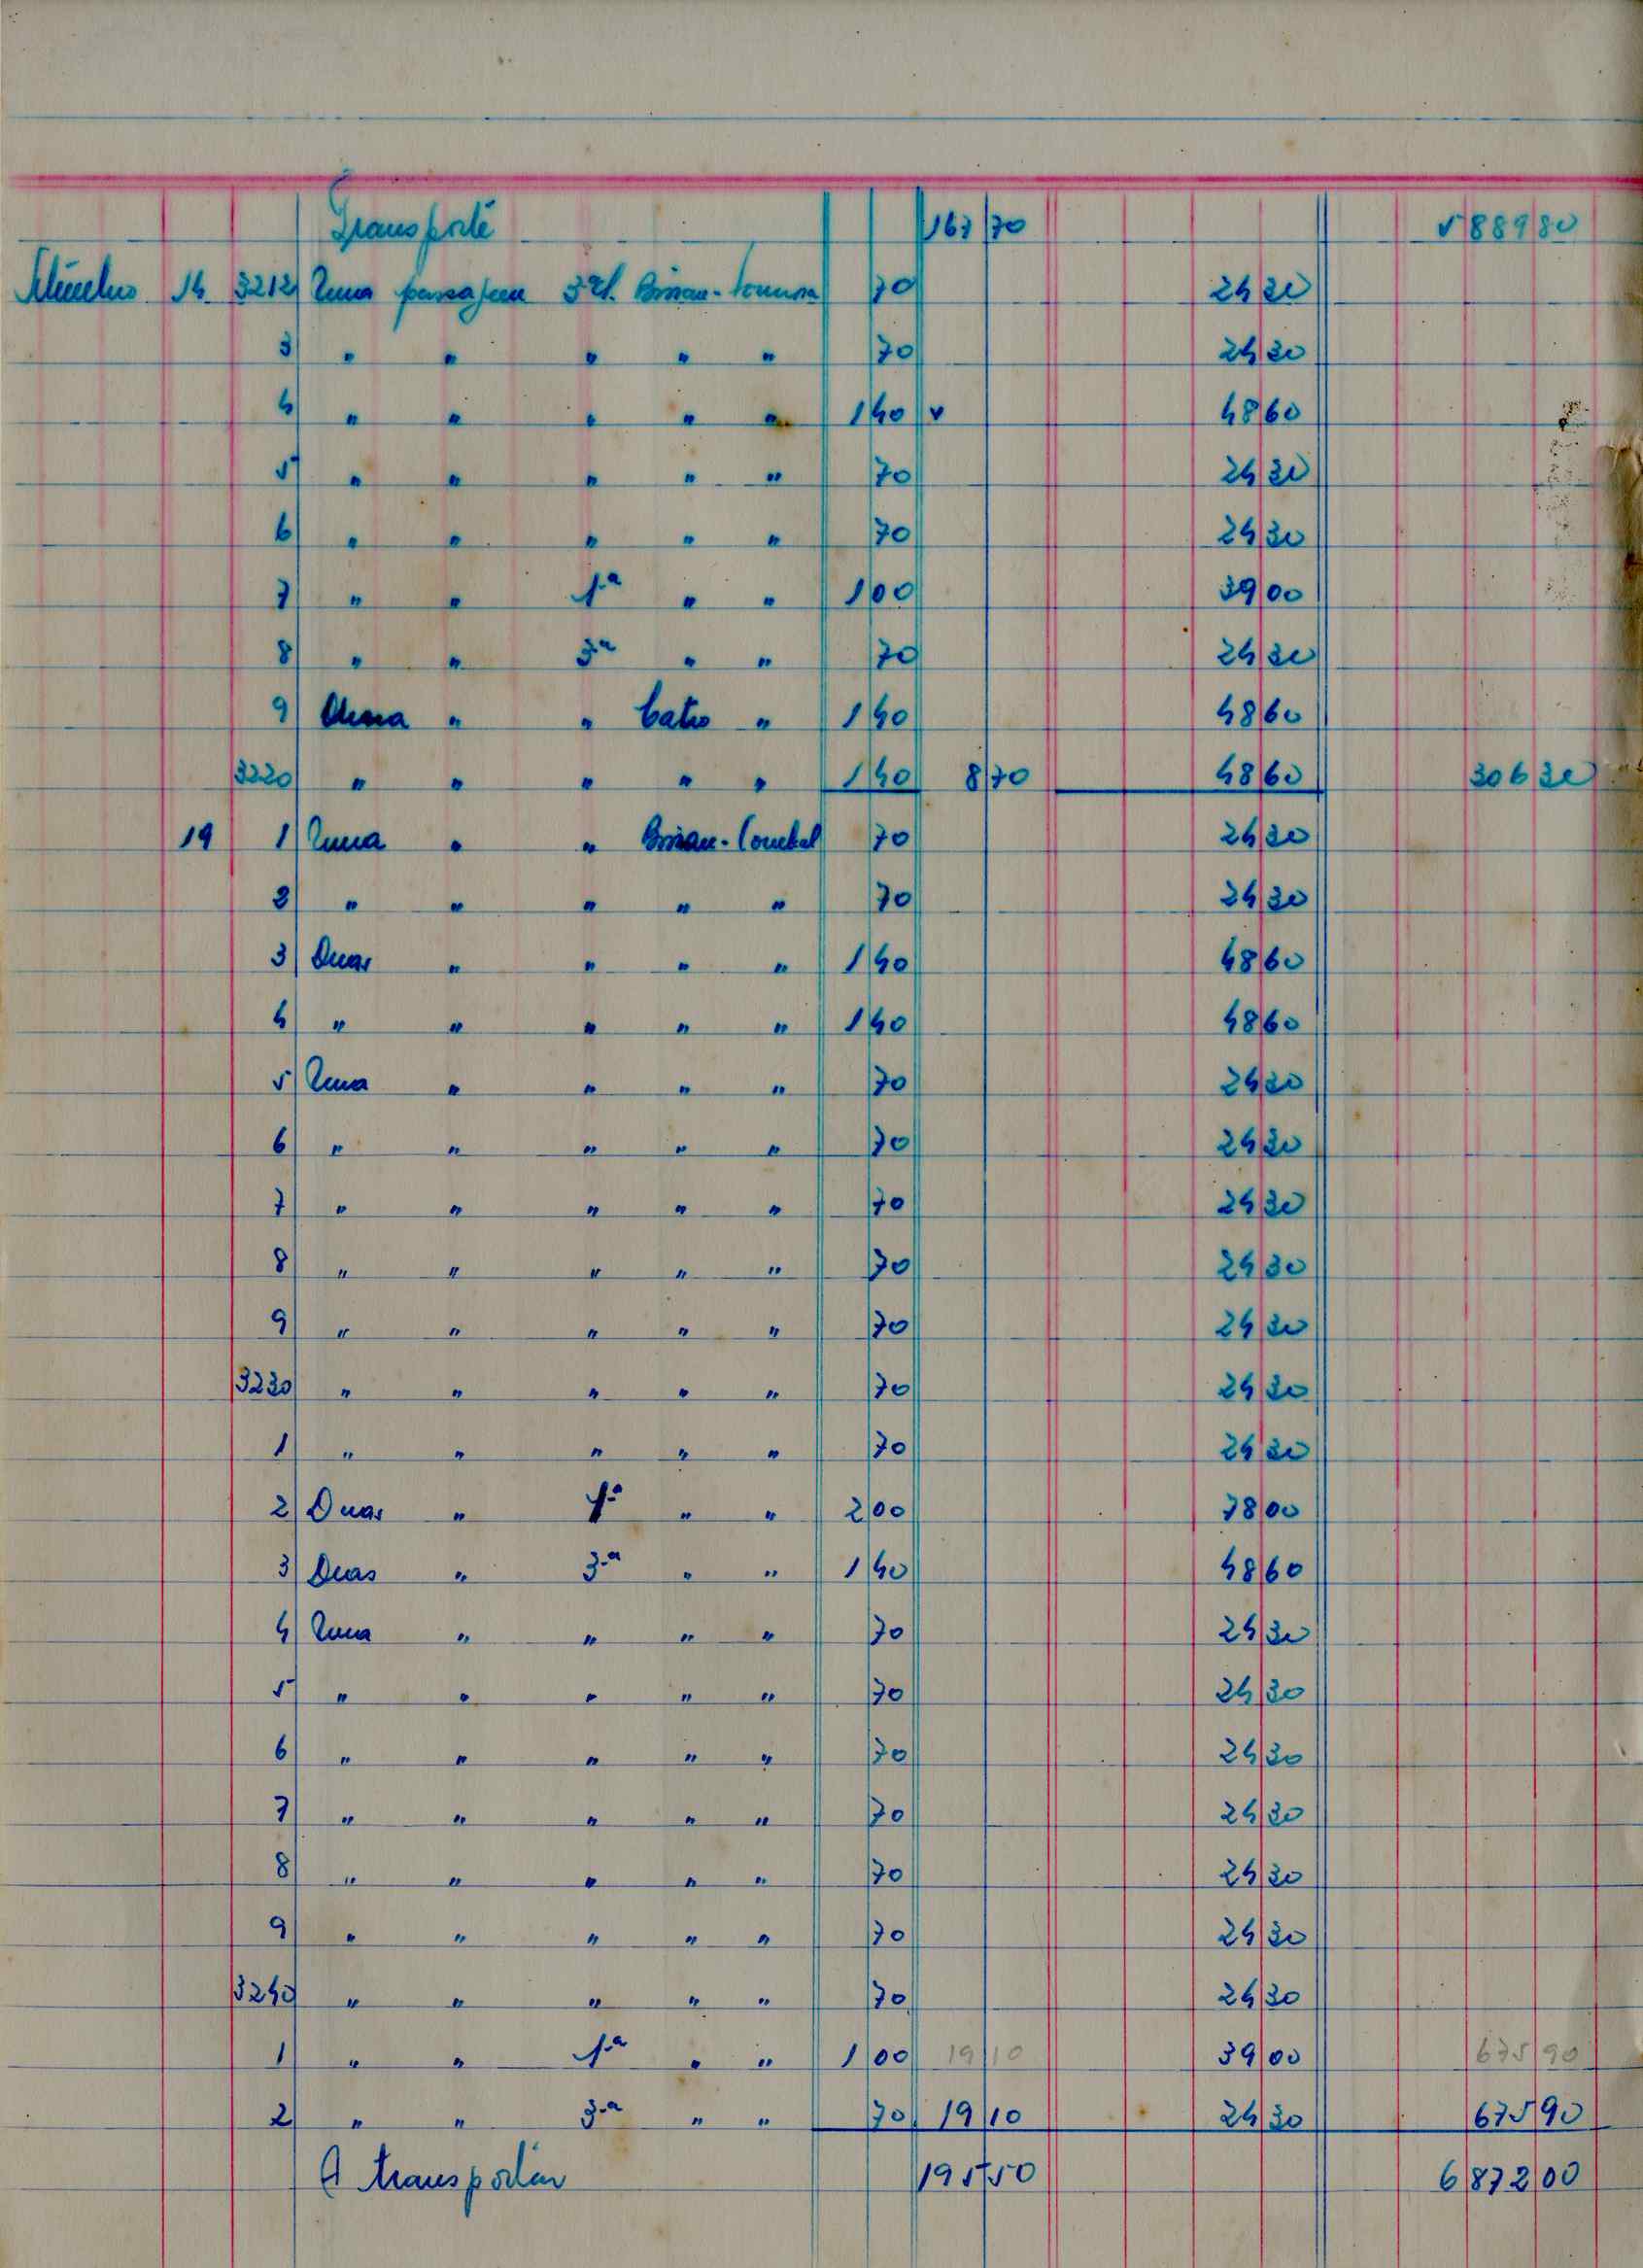 Transporte 167 70 5 889 80
14 3212 Uma passagem 3ª cl. Bissau- 70 24 30
3 " " " " " 70 24 30
4 " " " " " 1 40 v 48 60
5 " " " " " 70 24 30
6 " " " " " 70 24 30
7 " " 1ª " " 1 00 39 00
8 " " 3ª " " 70 24 30
9 " " Catio " 1 40 48 60
3220 " " " " " 1 40 8 70 48 60 306 30
19 1 Uma " " Bissau- 70 24 30
2 " " " " " 70 24 30
3 Duas " " " " 1 40 48 60
4 " " " " " 1 40 48 60
5 Uma " " " " 70 24 30
6 " " " " " 70 24 30
7 " " " " " 70 24 30
8 " " " " " 70 24 30
9 " " " " " 70 24 30
3230 " " " " " 70 24 30
1 " " " " " 70 24 30
2 Duas " 1ª " " 2 00 78 00
3 Duas " 3ª " " 1 40 48 60
4 Uma " " " " 70 24 30
5 " " " " " 70 24 30
6 " " " " " 70 24 30
7 " " " " " 70 24 30
8 " " " " " 70 24 30
9 " " " " " 70 24 30
3240 " " " " " 70 24 30
1 " " 1ª " " 1 00 19 10 39 00 675 90
2 " " 3ª " " 70 19 10 24 30 675 90
A transportar 195 50 6 872 00